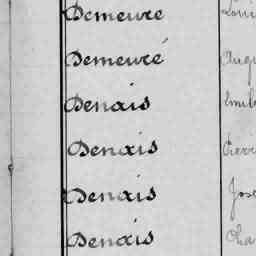 Demeure Loui
Demeuré Augu
Denais Emil
Denais Pierr
Denais Jose
Denais Cha